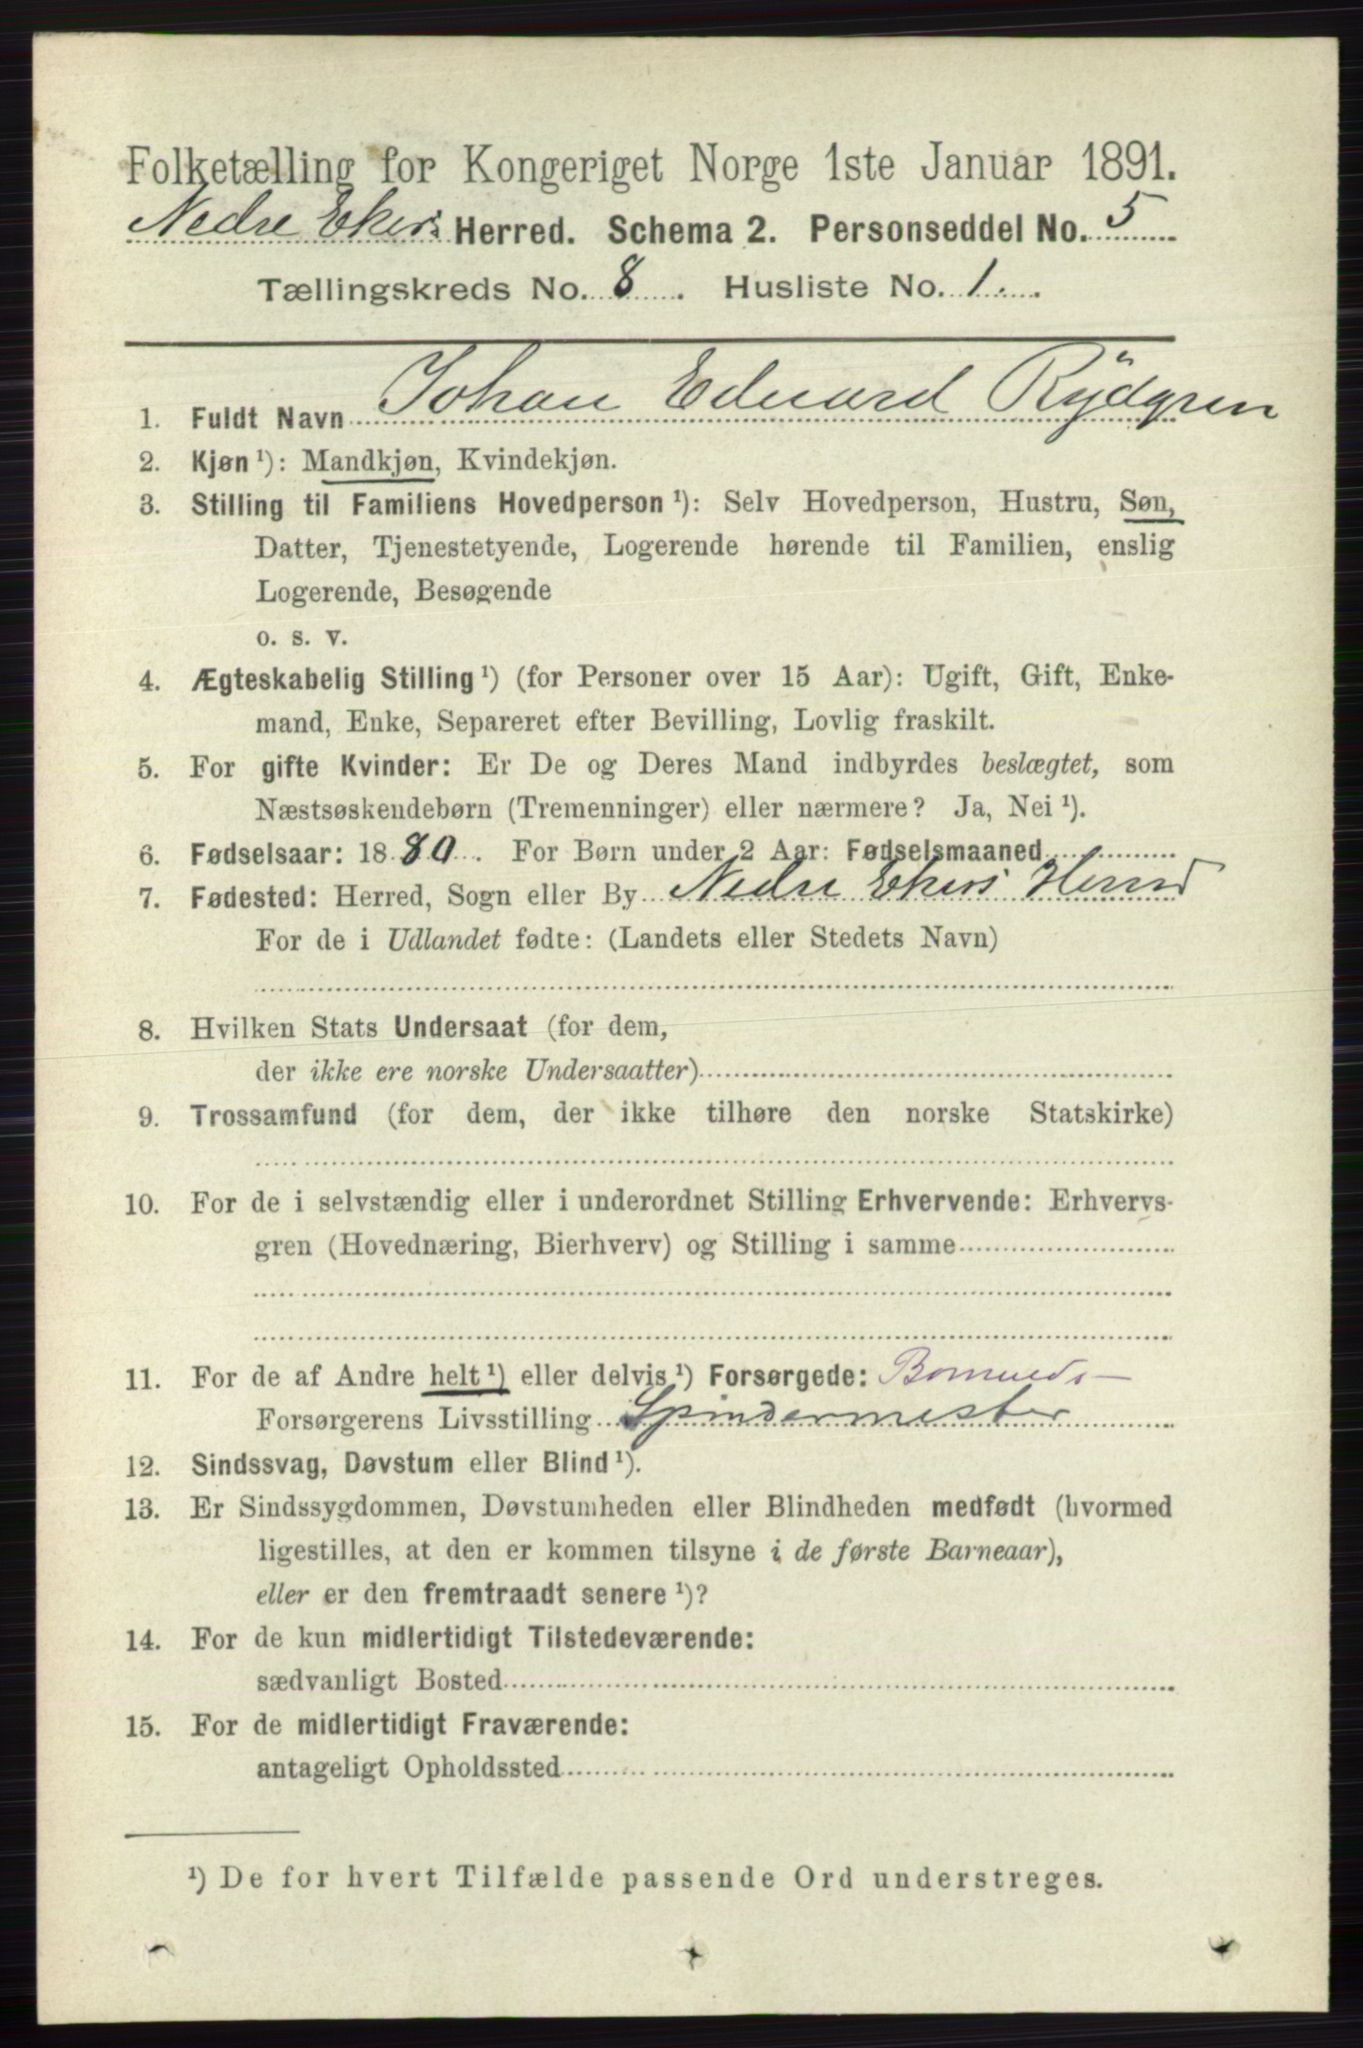 Folketælling for Kongeriget Norge 1ste Januar 1891.
Nedre Ekers Herred. Schema 2. Personseddel No. 5
Tællingskreds No. 8. Husliste No. 1.
1. Fuldt Navn Johan Eduard Rÿdgren
2. Kjøn ¹): Mandkjøn, Kvindekjøn.
3. Stilling til Familiens Hovedperson ¹): Selv Hovedperson, Hustru, Søn,
Datter, Tjenestetyende, Logerende hørende til Familien, enslig
Logerende, Besøgende
o. s. v.
4. Ægteskabelig Stilling ¹) (for Personer over 15 Aar): Ugift, Gift, Enke-
mand, Enke, Separeret efter Bevilling, Lovlig fraskilt.
5. For gifte Kvinder: Er De og Deres Mand indbyrdes beslægtet, som
Næstsøskendebørn (Tremenninger) eller nærmere? Ja, Nei ¹).
6. Fødselsaar: 1880. For Børn under 2 Aar: Fødselsmaaned
7. Fødested: Herred, Sogn eller By Nedre Ekers Herred
For de i Udlandet fødte: (Landets eller Stedets Navn)
8. Hvilken Stats Undersaat (for dem,
der ikke ere norske Undersaatter)
9. Trossamfund (for dem, der ikke tilhøre den norske Statskirke)
10. For de i selvstændig eller i underordnet Stilling Erhvervende: Erhvervs-
gren (Hovednæring, Bierhverv) og Stilling i samme
11. For de af Andre helt ¹) eller delvis ¹) Forsørgede: Bomulds-
Forsørgerens Livsstilling Spindermester
12. Sindssvag, Døvstum eller Blind ¹).
13. Er Sindssygdommen, Døvstumheden eller Blindheden medfødt (hvormed
ligestilles, at den er kommen tilsyne i de første Barneaar),
eller er den fremtraadt senere ¹)?
14. For de kun midlertidigt Tilstedeværende:
sædvanligt Bosted
15. For de midlertidigt Fraværende:
antageligt Opholdssted
¹) De for hvert Tilfælde passende Ord understreges.